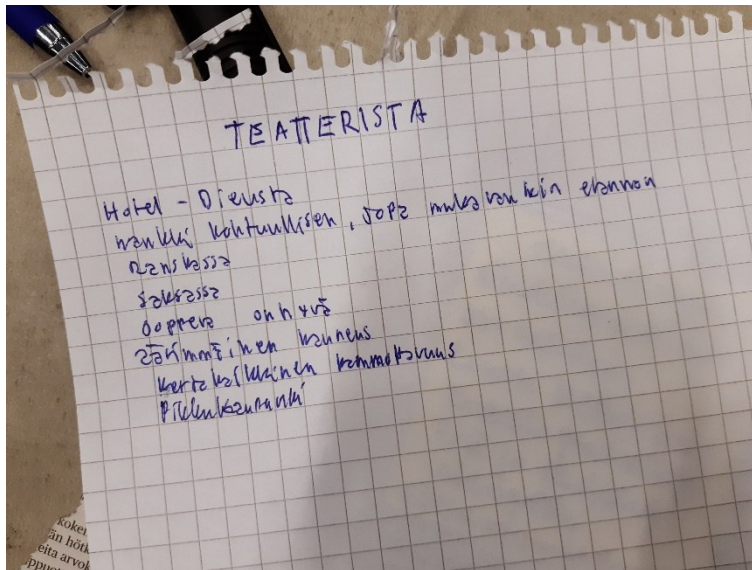 TEATTERISTA
Hotel - Dieusta
hankki kohtuullisen, jopa mukavankin elannon
Ranskassa
Saksassa
ooppera on hyvä
äärimmäinen kauneus
kertakaikkinen kammottavuus
pikkukaupunki
koke
än hötk
eita arvok